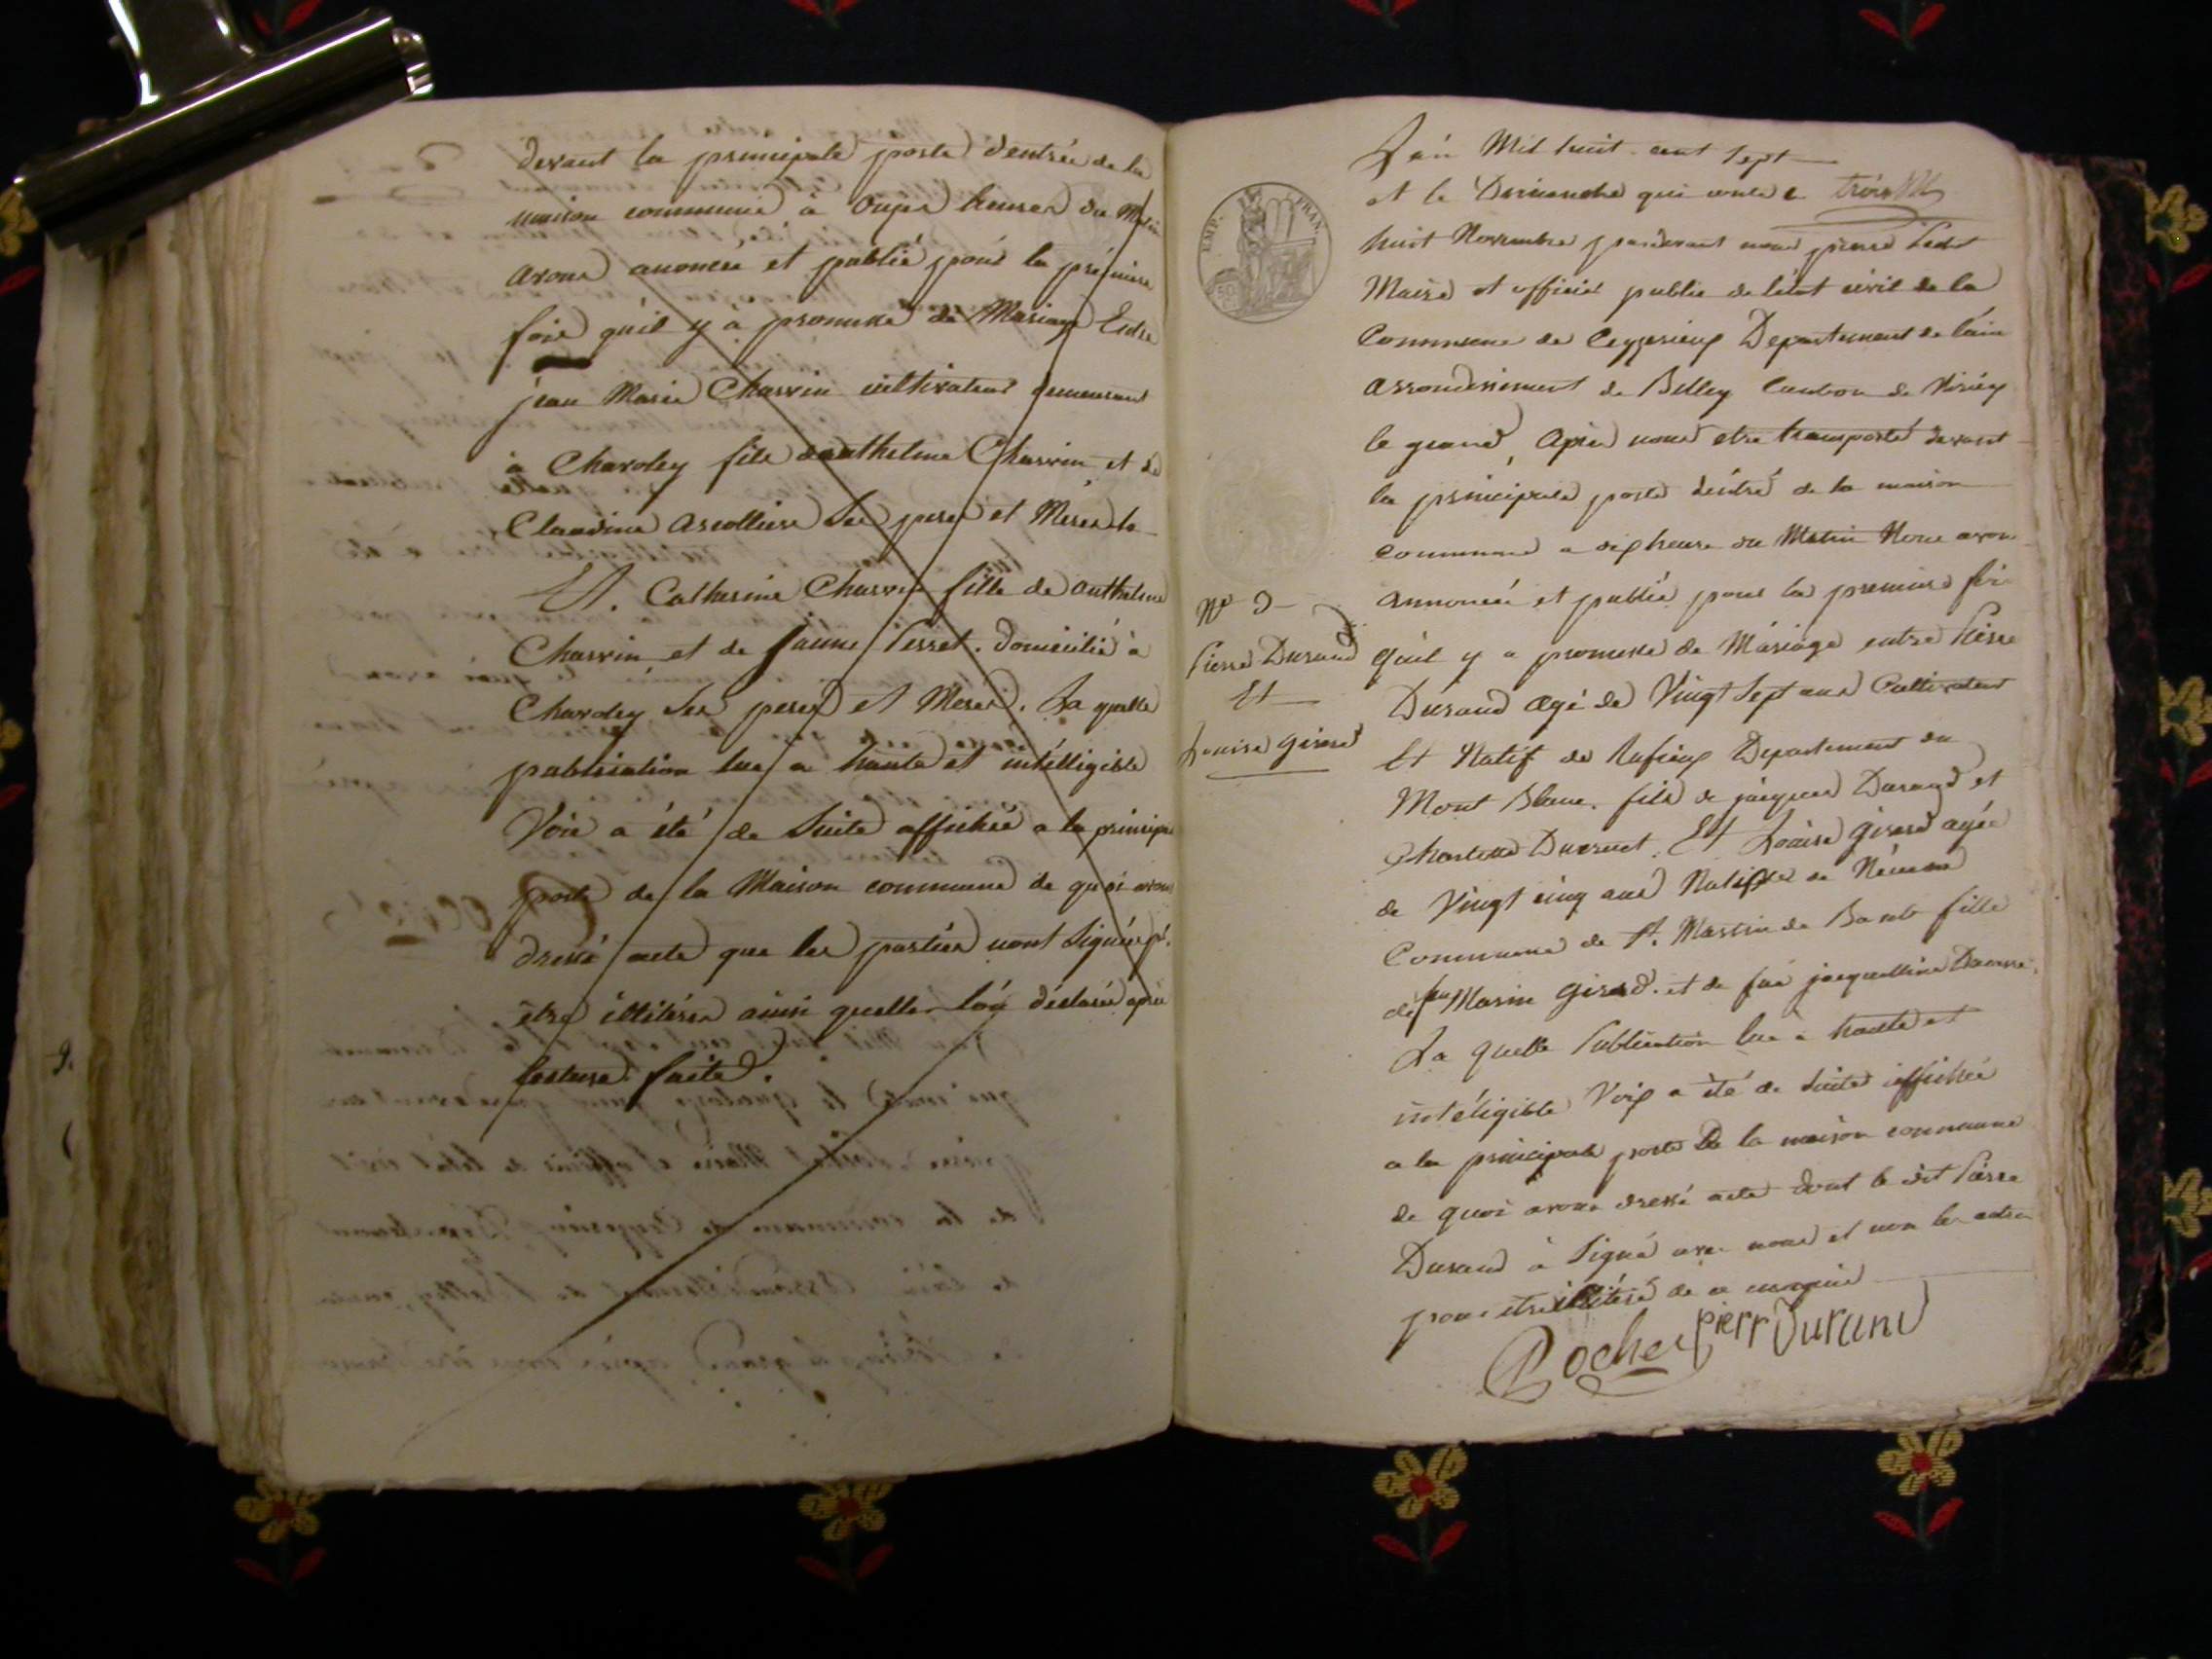 devant la principale porte d'entrée de la
maison commune à onze heures du Matin
avons anoncée et publié pour la premiere
fois qu'il y à promesse de Mariage Entre
jean Marie Charvin cultivateur demeurant
à Charoley fils d'anthelme Charvin et de
Claudine ses peres et Meres
Et. Catherine Charvin fille de anthelme
Charvin et de jeanne Perret. domicilié à
Charoley ses peres et Meres. La quelle
publication lue a haute et intélligible
Voix a été de suite affichée a la principale
porte de la Maison commune de quoi avons
dressé acte que les parties n'ont signées pr.
etre illitérés ainsi quelles l'on déclarés après
lecture faite.
L'an Mil huit cent sept
et le Dimanche qui conte
huit Novembre pardevant nous pierre
Maire et officier public de l'état civil de la
Commune de Ceyzerieux Departement de l'ain
arrondissement de Belley Canton de Virieux
le grand, Après nous etre transporté devant
la principale porte d'entré de la maison
commune a dix heure du Matin Nous avons
annoncée et publié pour la premiere foi
N°
Pierre Durand
Et
Louise girerd
qu'il y a promesse de Mariage entre Pierre
Durand agé de Vingt sept ans Cultivateur
Et Natif de Rufieux Departement du
Mont Blanc. fils de jacques Durand et
Et Louise girerd agée
de Vingt cinq ans Native de
Commune de St. Martin de fille
de feu Marin girerd. et de fue jacquelline
La quelle Publication lue a haute et
intéligible Voix a été de suite affichée
a la principale porte De la maison commune
de quoi avons dressé acte dont le dit Pierre
Durand à Signé avec nous et non les autres
pour etre illitéré de ce enquis
Rochex pierr Durand
EMP. FRAN.